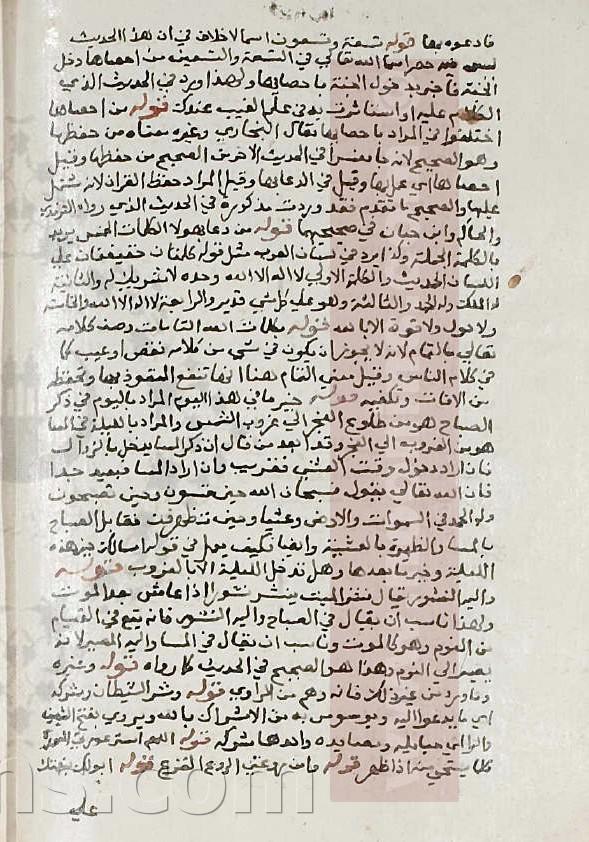 فادعوه بها قوله تسعة وتسعون اسما لا خلاف في ان هذا الحديث
ليس فيه حصر اسما الله تعالى في التسعة والتسعين من احصاها دخل
الجنة فاخبر بد خول الجنة باحصايها ولهذا ورد في الحديث الذي
الكلام عليه او استاثرت به في علم الغيب عندك قوله من احصاها
اختلفوا في المراد باحصايها فقال البخاري وغيره معناه من حفظها
وهو الصحيح لانه جا مفسرا في الحديث الاخر من الصحيح من حفظها وقيل
احصاها اي عمل بها وقيل في الدعا بها وقيل المراد حفظ القران لانه مشتمل
عليها والصحيح ما تقدم فقد وردت مذكورة في الحديث الذي رواه الترمذي
والحاكم وابن حبان في صحيحيهما قوله من دعا بهولا الكلمات الخمس يريد
بالكلمة الجملة ولذا يرد في لسان العرب مثل قوله كلمتان خفيفتان على
اللسان الحديث والكلمة الاولى لا اله الا الله وحده لا شريك له والثانية
له الملك وله الحمد والثالثة وهو على كل شي قدير والرابعة لا اله الا الله والخامسة
ولا حول ولا قوة الا بالله قوله بكلمات الله التامات وصف كلامه
تعالى بالتمام لانه لا يجوز ان يكون في شي من كلامه نقص او عيب كما
في كلام الناس وقيل معنى التمام هنا انها تنفع المتعوذ بها وتحفظه
من الافات وتكفيه قوله خير ما في هذا اليوم المراد باليوم في ذكر
الصباح هو من طلوع الفجر الى غروب الشمس والمراد بالليلة في المسا
هو من الغروب الى الفجر وقد ابعد من قال ان ذكر المسا يدخل بالزوال
فان اراد دخول وقت العشي فقريب وان اراد المسا فبعيد جدا
فان الله تعالى يقول فسبحان الله حين تمسون وحين تصبحون
وله الحمد في السموات والارض وعشيا وحين تظهرون فقابل الصباح
بالمسا والظهيرة بالعشية وايضا فكيف يعمل في قوله اسالك خير هذه
الليلة وخير ما بعدها وهل تدخل الليلة الا بالغروب قوله
واليه النشور يقال نشر الميت ينشر نشورا اذا عاش بعد الموت
ولهذا ناسب ان يقال في الصباح واليه النشور فانه يقع في القيام
من النوم وهو كالموت وناسب ان يقال في المسا واليه المصير لانه
يصير الى النوم وهذا هو الصحيح في الحديث كما رواه قوله وغيره
وما ورد من غير ذلك فانه وهم من الراوي قوله وشر الشيطان وشركه
اي ما يدعوا اليه ويوسوس به من الاشراك بالله ويروى بفتح الشين
والرا اي حبايله ومصايده واحدها شركة قوله اللهم استر عورتي العورة
كلما يستحى منه اذا ظهر قوله وامن روعتي الروع الفزع قوله ابو لك بنعمتك
علي